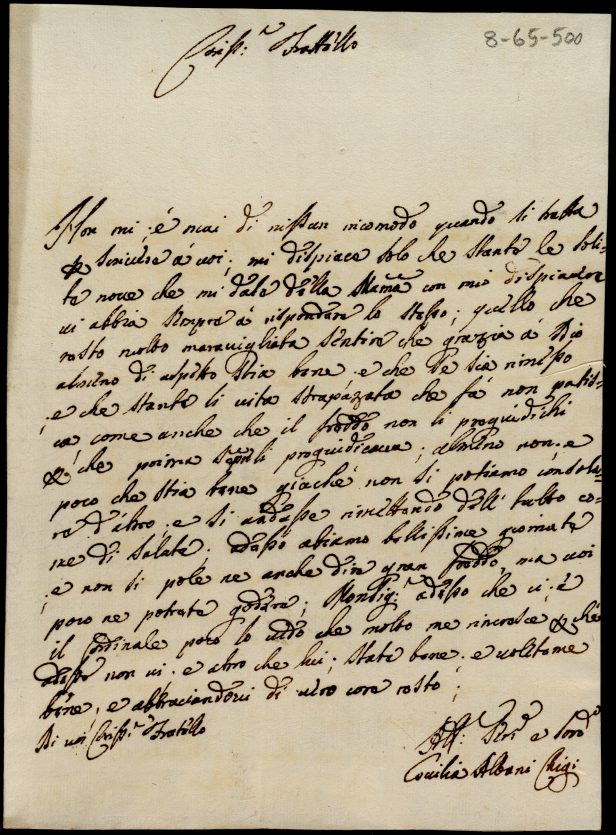 8-65-500
Cariss.mo Fratello
Non mi è mai di nissun incomodo quando si tratta
di scrivere á voi; mi dispiace solo che stante le soli-
te nove che mi date della Mamā con mio dispiacere
vi abbia sempre á rispondere lo stesso; quello che
resto molto maravigliata sentire che grazia á Dio
almeno di aspetto stia bene e che se sia rimesso
e che stante li vita strapazzata che fá non patis-
ca come anche che il freddo non li pregiudichi
che prima li pregiudicava; almeno non e
poco che stia bene giache non si potiamo consola-
re d'altro e si andasse rimettendo dell' tutto co-
me di salute. adesso abiamo bellissime giornate
e non si pole ne anche dire gran freddo, ma voi
poco ne potrete godere; Monsig.r adesso che vi è
il Cardinale poco lo vedo che molto me rincresce che
adesso non vi e altro che lui; state bene e voleteme
bene, e abbraciandovi di vero core resto;
Di voi Cariss.mo Fratello
Aff.ma e Sor.a
Cecilia Albani Chigi